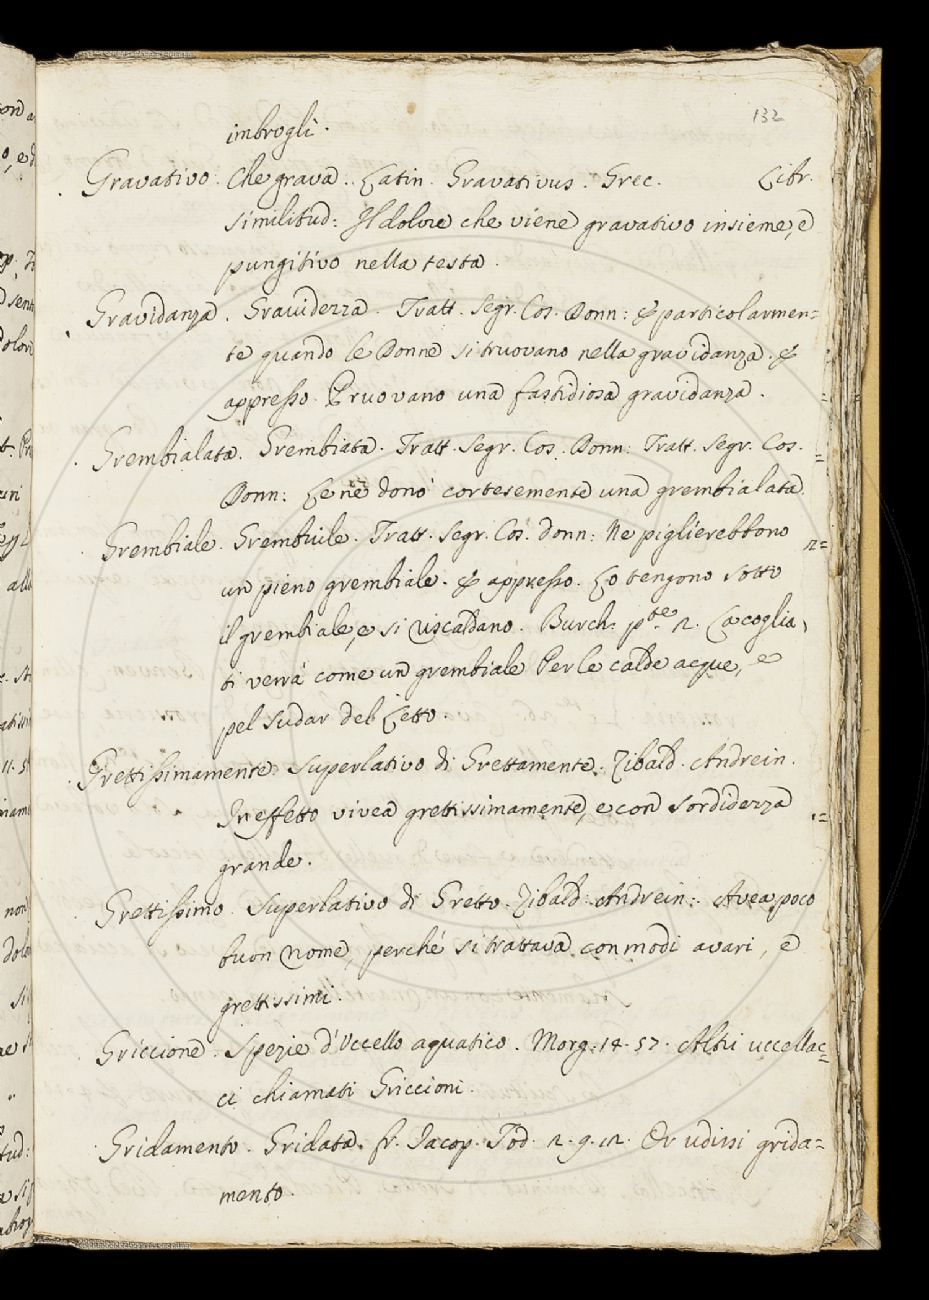 132
imbrogli.
Gravativo. Che grava. Latin. Gravativus. Grec. Libr.
similitud: Il dolore che viene gravativo insieme, e
pungitivo nella testa.
Gravidanza. Gravidezza. Tratt. Segr. Cos. Donn: E particolarmen=
te quando le Donne si truovano nella gravidanza. E
appresso. Pruovano una fastidiosa gravidanza.
Grembialata. Grembiata. Tratt. Segr. Cos. Donn: Tratt. Segr. Cos.
Donn: Le ne donò cortesemente una grembialata.
Grembiale. Grembiule. Tratt. Segr. Cos. donn: Ne piglierebbono
un pieno grembiale. E appresso. Lo tengono sotto
il grembiale, e si riscaldano. Burch: pte. 2. La coglia
ti verrà come un grembiale Per le calde acque, e
pel sudar del Letto.
Grettissimamente. Superlativo di Grettamente. Zibald. Andrein.
In effetto vivea grettissimamente, e con sordidezza
grande.
Grettissimo. Superlativo di Gretto. Zibald. Andrein: Avea poco
buon nome, perché si trattava con modi avari, e
grettissimi.
Griccione. Spezie d'Uccello aquatico. Morg: 14. 57. Altri uccellac=
ci chiamati Griccioni.
Gridamento. Gridata. fr. Iacop. Tod. 2. 9. 12. Or udirsi grida=
mento.